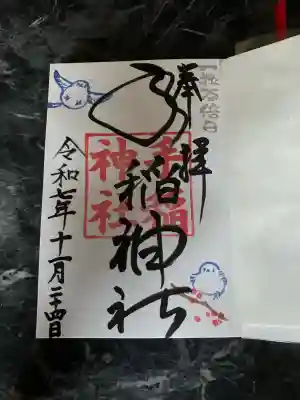 一粒万倍日
奉拝
手稲神社
手稲
神社
令和七年十一月二十四日